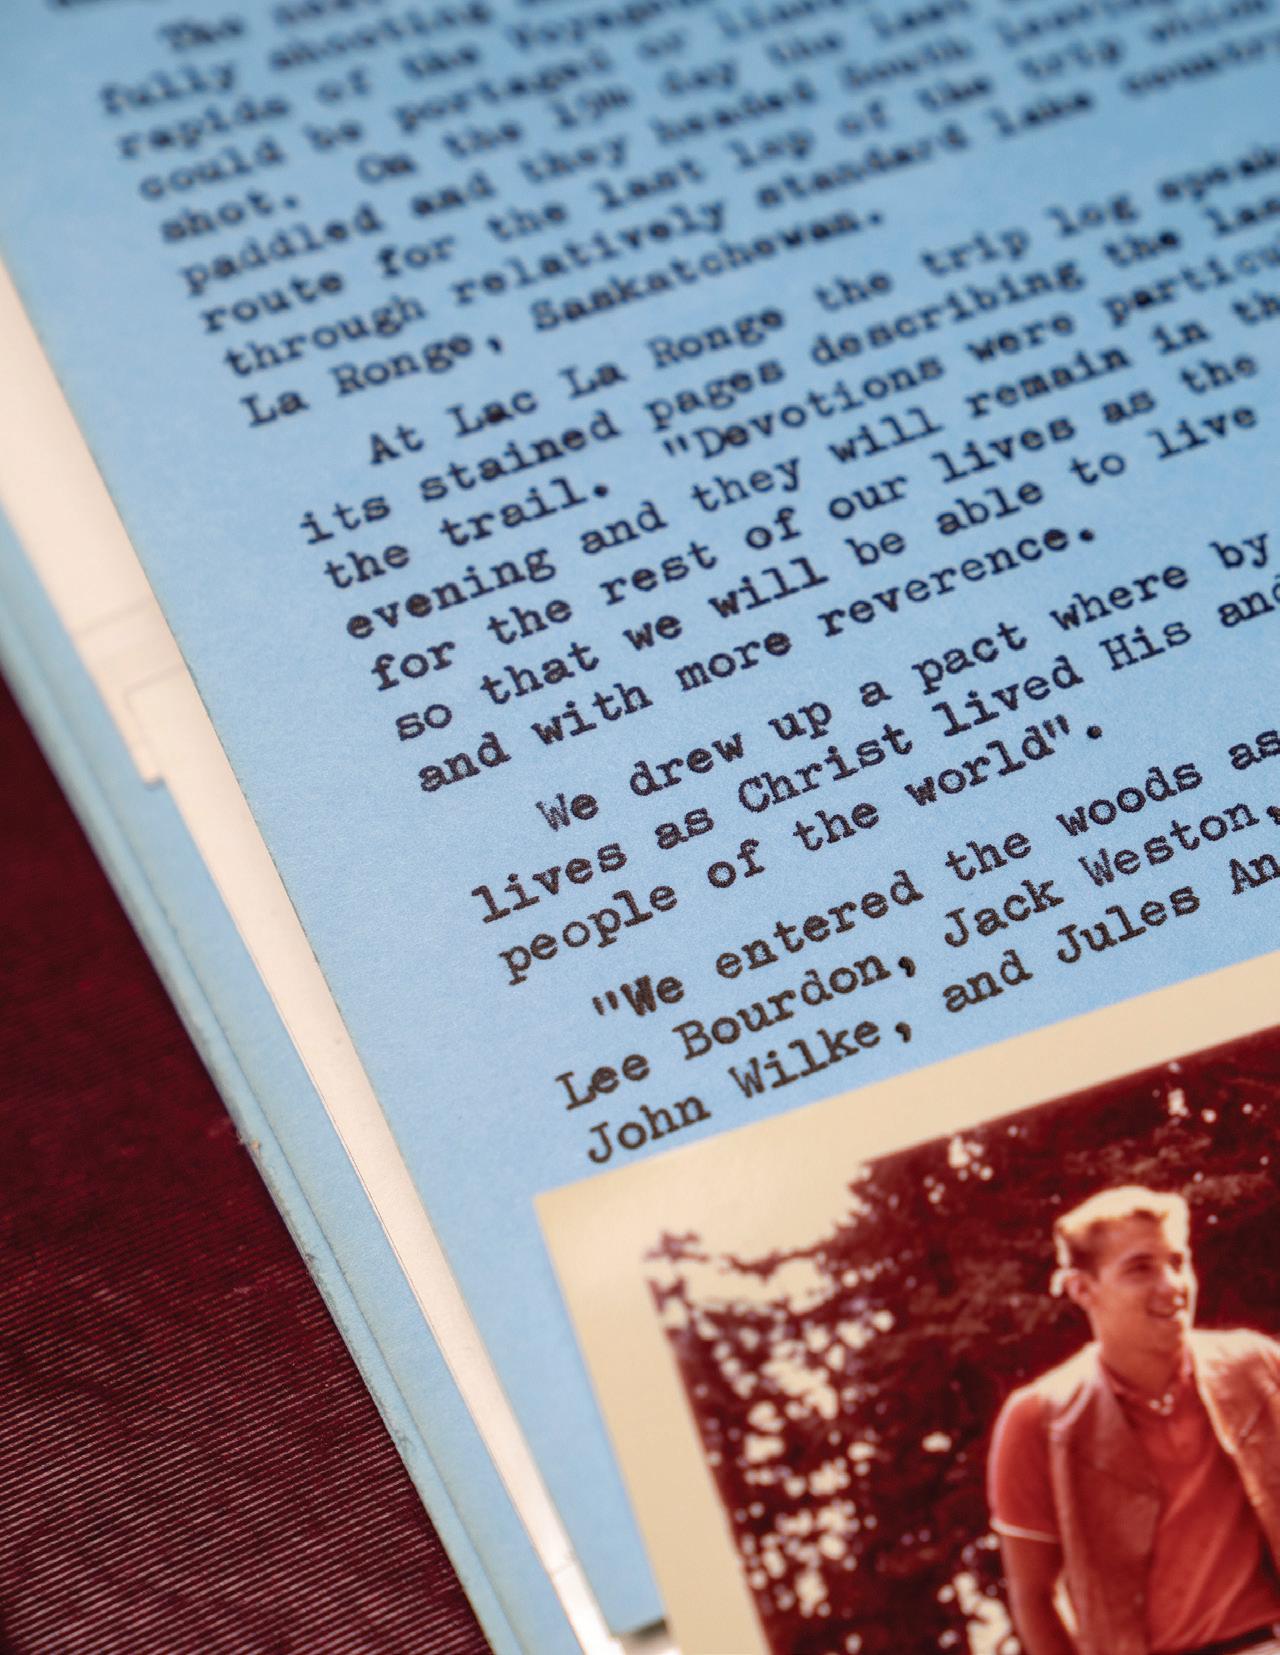 The
fully shooting
rapids of the Voyageur
could be portaged or lined
shot. On the 15th day the last
paddled and they headed South leaving
route for the last leg of the trip which
through relatively standard lake country
La Ronge, Saskatchewan.
At Lac La Ronge the trip log speak
its stained pages describing the las
the trail. "Devotions were particu
evening and they will remain in th
for the rest of our lives as the
so that we will be able to live
and with more reverence.
We drew up a pact where by
lives as Christ lived His and
people of the world".
"We entered the woods as
Lee Bourdon, Jack Weston,
John Wilke, and Jules An